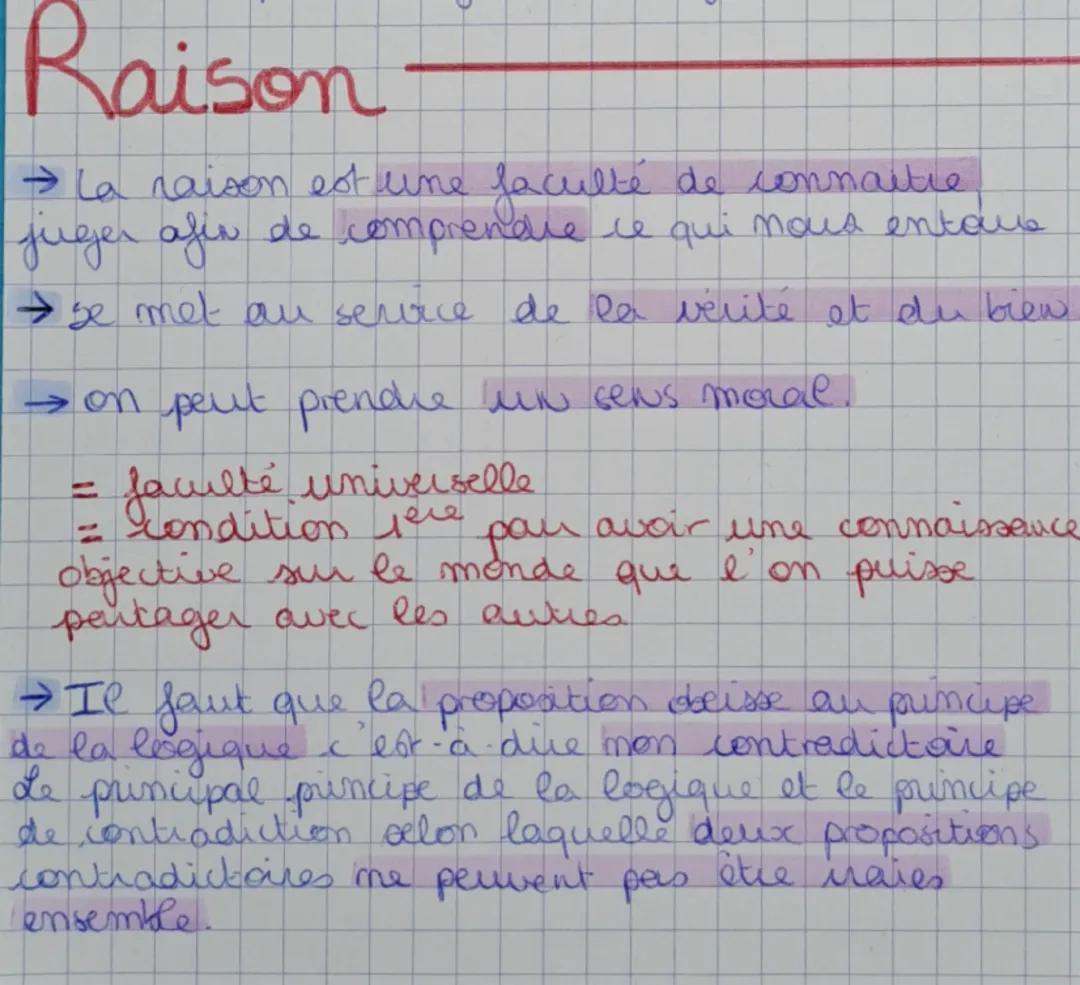 Raison
→ La raison est une faculté de connaitre
juger afin de comprendre ce qui nous entoure
→ se met au service de la vérité et du bien
→ on peut prendre un sens moral.
= faculté universelle
= condition 1ère pour avoir une connaissance
objective sur le monde que l'on puisse
partager avec les autres
→ Il faut que la proposition obéisse au principe
de la logique c'est-à-dire non contradictoire
Le principal principe de la logique et le principe
de contradiction selon laquelle deux propositions
contradictoires ne peuvent pas être vraies
ensemble.